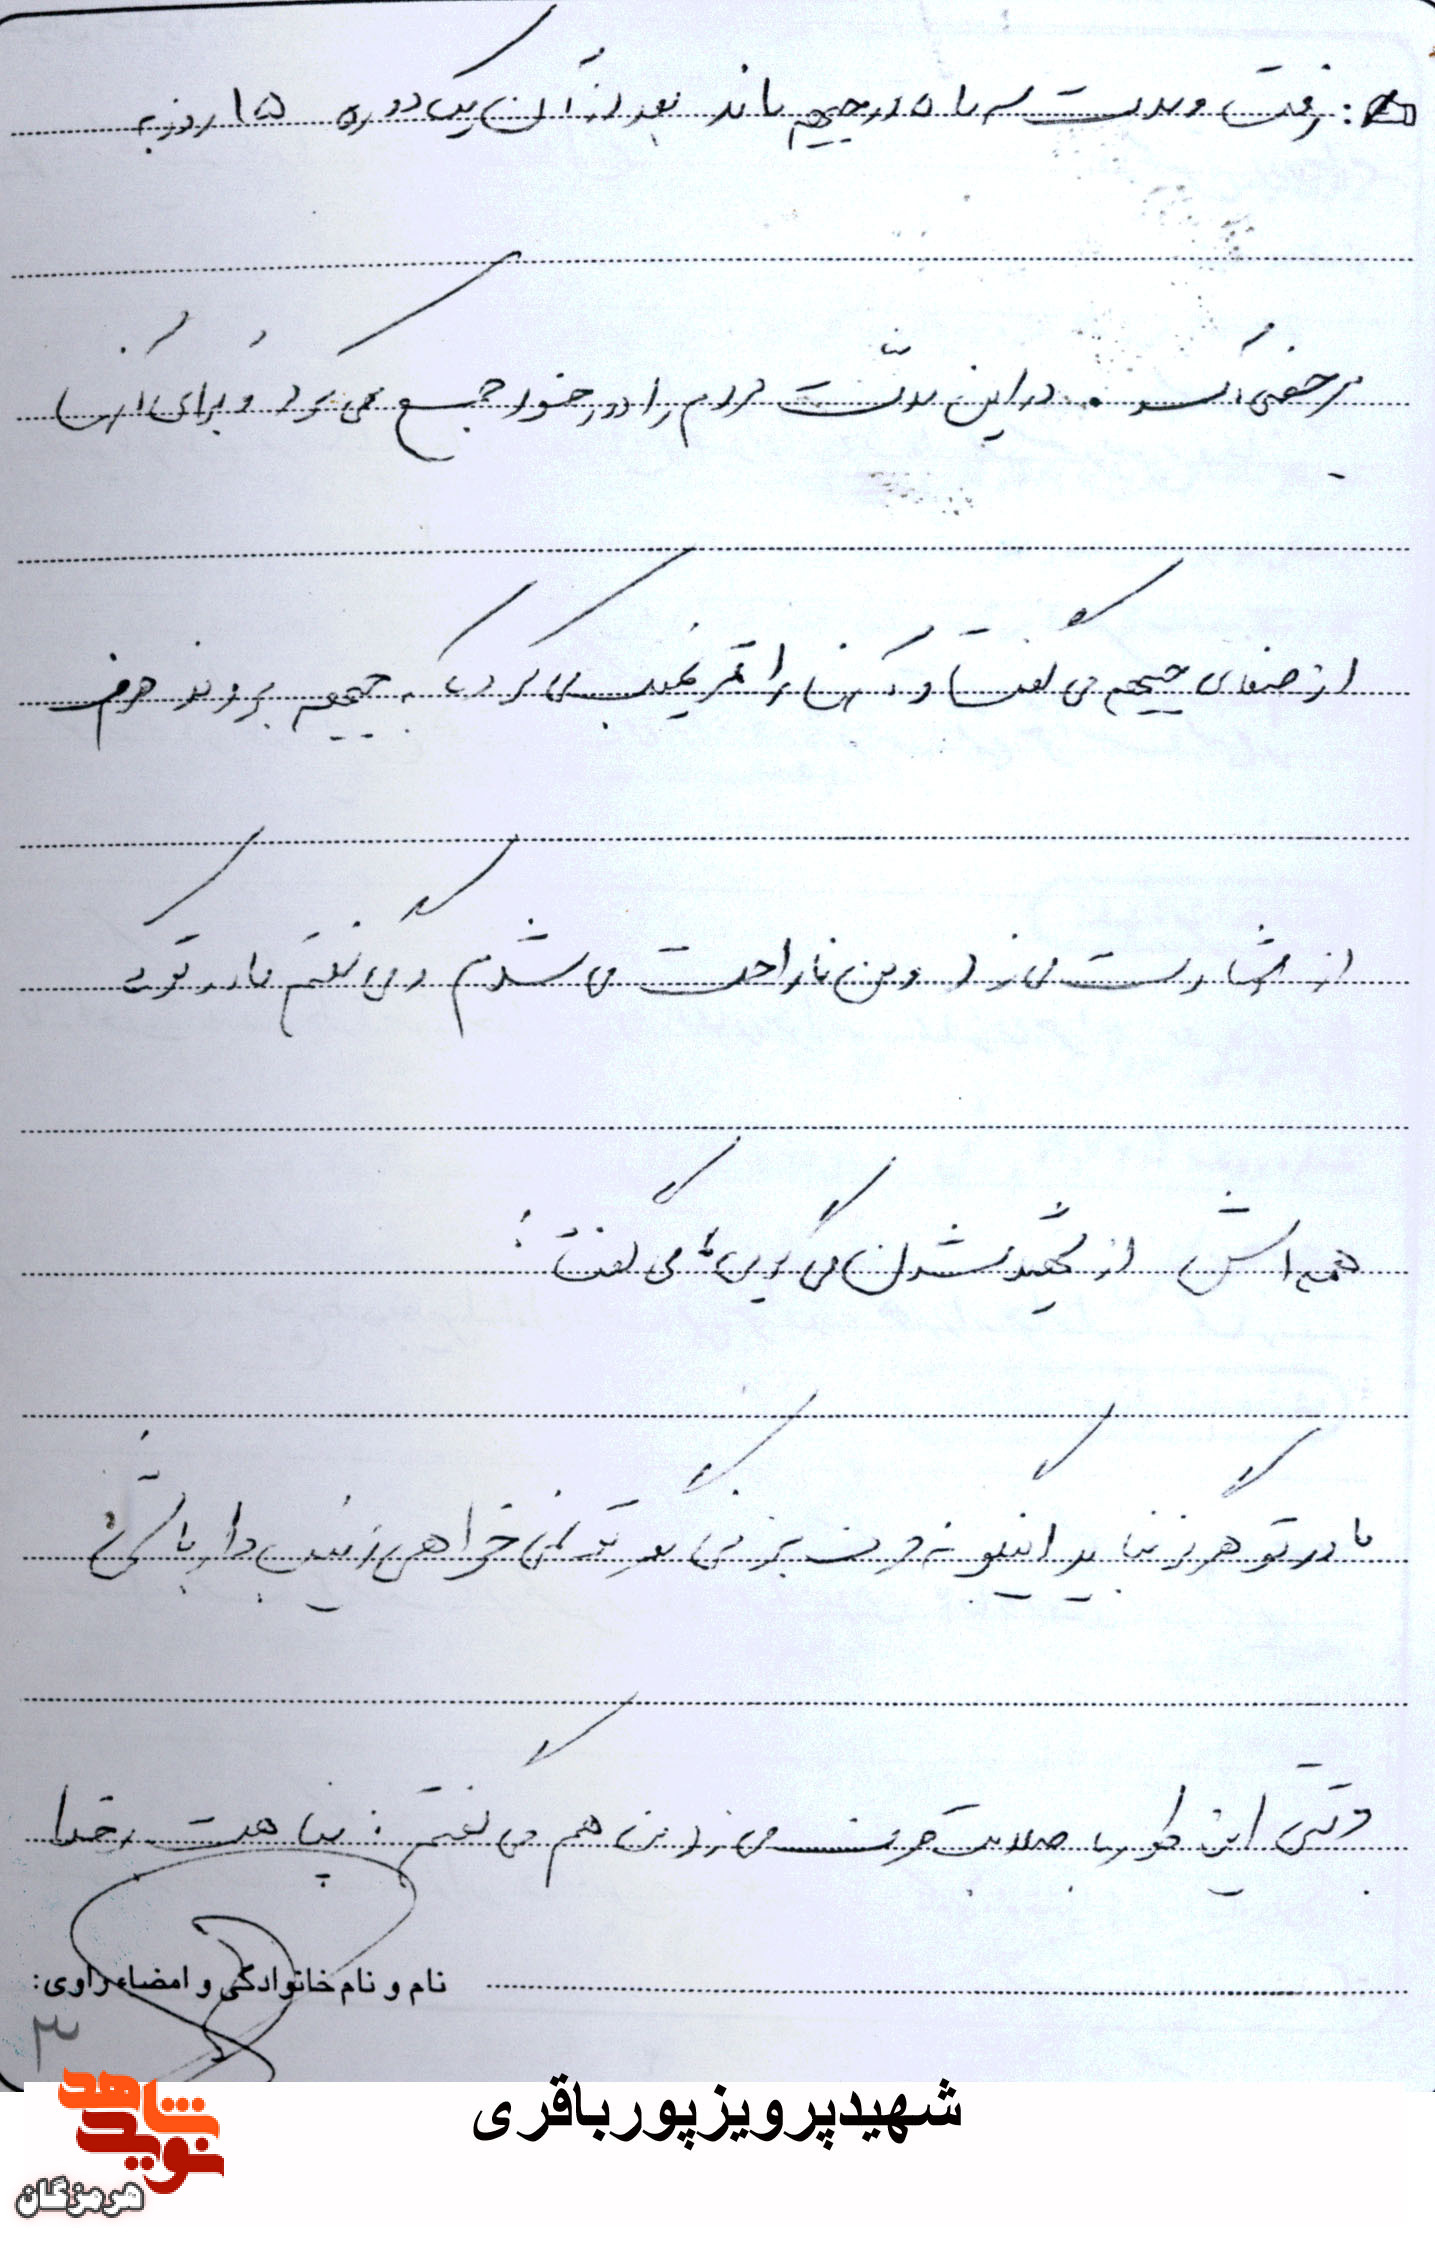 رفت و مدت سه ماه در جبهه ماند بعد از آن یک دوره ۱۵ روز به
مرخصی آمد. در این مدّت مردم را دور خود جمع می کرد و برای آنها
از صفای جبهه می گفت و آنها را ترغیب می کرد که به جبهه بروند حرف
از شهادت می زد و من ناراحت می شدم و می گفتم مادر تو که
همه اش از شهید شدن می گویی، می گفت:
مادر تو هرگز نباید اینگونه حرف بزنی مگر تو نمی خواهی زینب وار باشی
وقتی این طور با صلابت حرف می زد من هم می گفتم: پناهت بر خدا
نام و نام خانوادگی و امضاء راوی:
۳
شهید پرویز پور باقری
نوید شاهد
هرمزگان